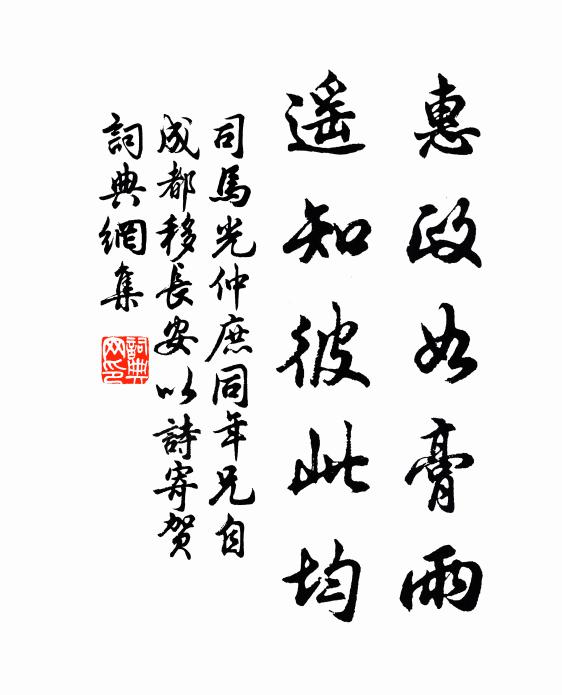 惠政如膏雨
遥知彼此均
司馬光仲庶同年兄自
成都移長安以詩寄贺
詞典網集
詞典网印